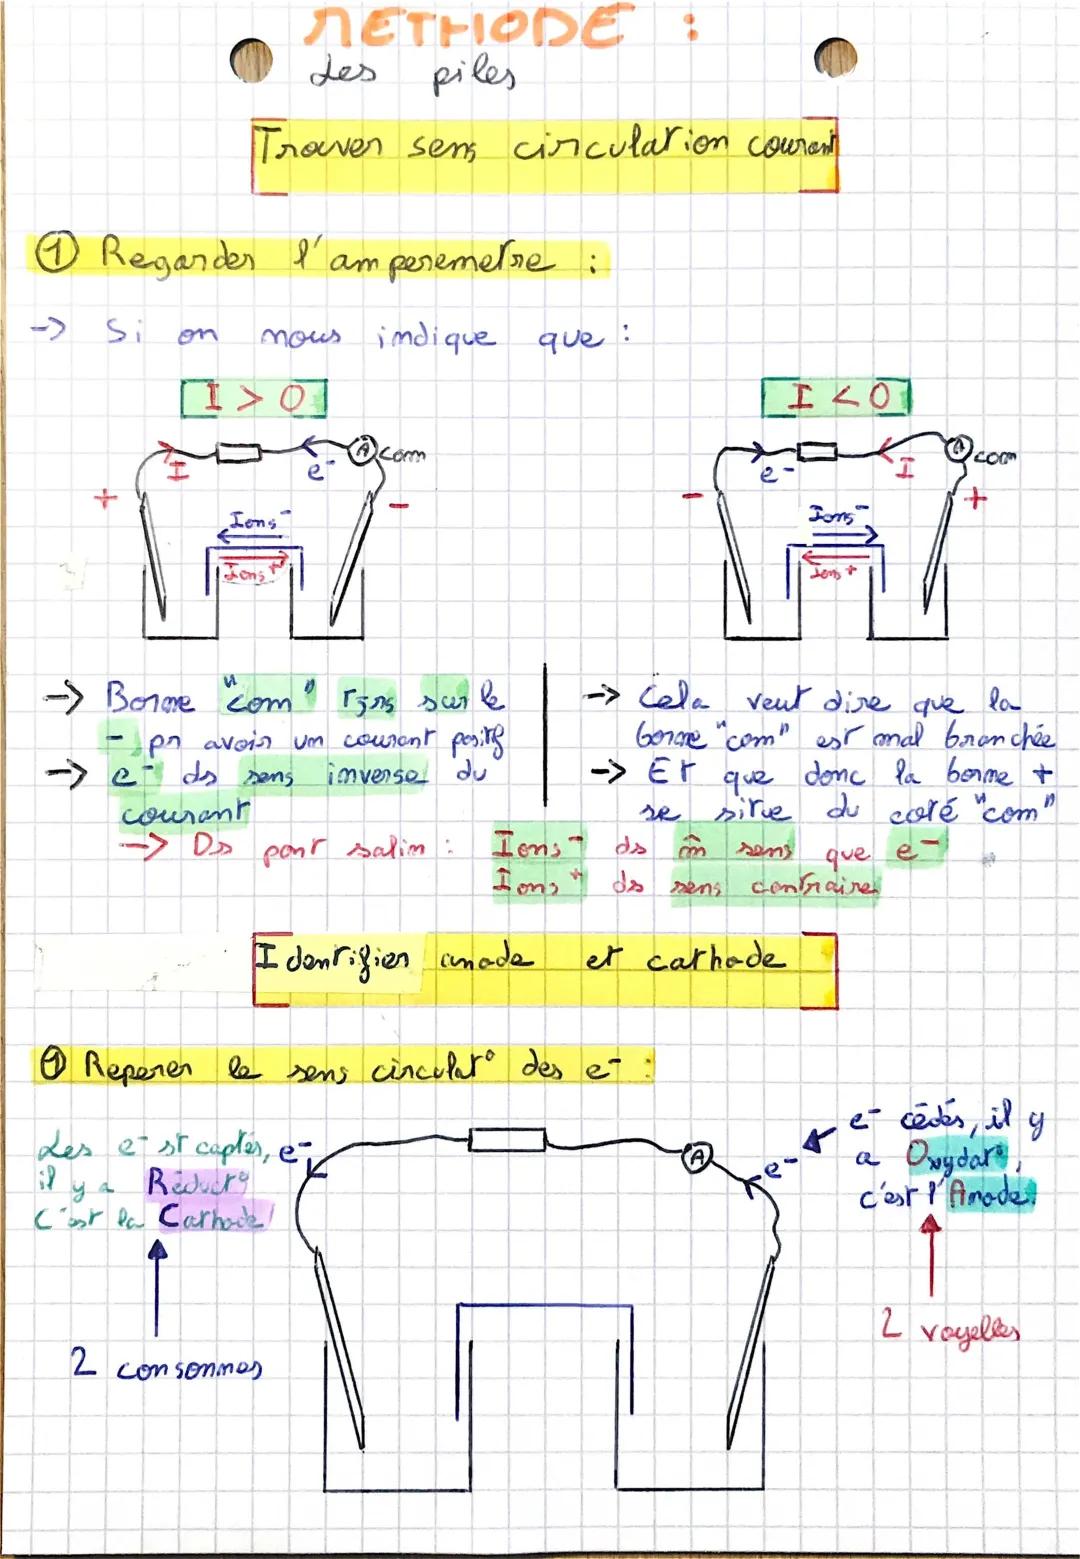 METHODE :
Les piles
Trouver sens circulation courant
① Regarder l'amperemetre :
-> Si on nous indique que :
I > 0
I < 0
I
e-
A
com
e-
I
A
com
+
-
-
+
Ions-
Ions+
Ions-
Ions+
-> Borne "com" tjrs sur le
- pr avoir un courant positif
-> e- ds sens inverse du
courant
-> Cela veut dire que la
borne "com" est mal branchée
-> Et que donc la borne +
se situe du coté "com"
-> Ds pont salin : Ions- ds m̂ sens que e-
Ions+ ds sens contraire
Identifier anode et cathode
① Reperer le sens circulat° des e- :
Les e- st captés,
il y a Réduct°
C'est la Cathode
2 consonnes
e-
A
e-
e- cédés, il y
a Oxydat°,
c'est l'Anode.
2 voyelles